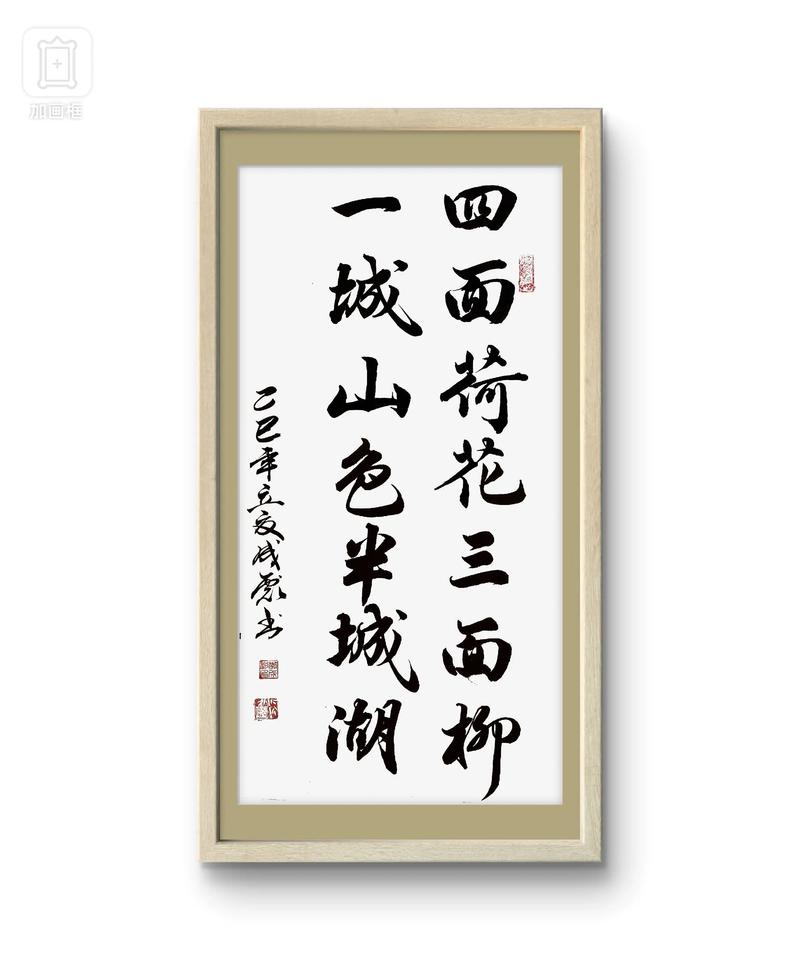 加画框
四面荷花三面柳
一城山色半城湖
乙巳年立夏成彪书